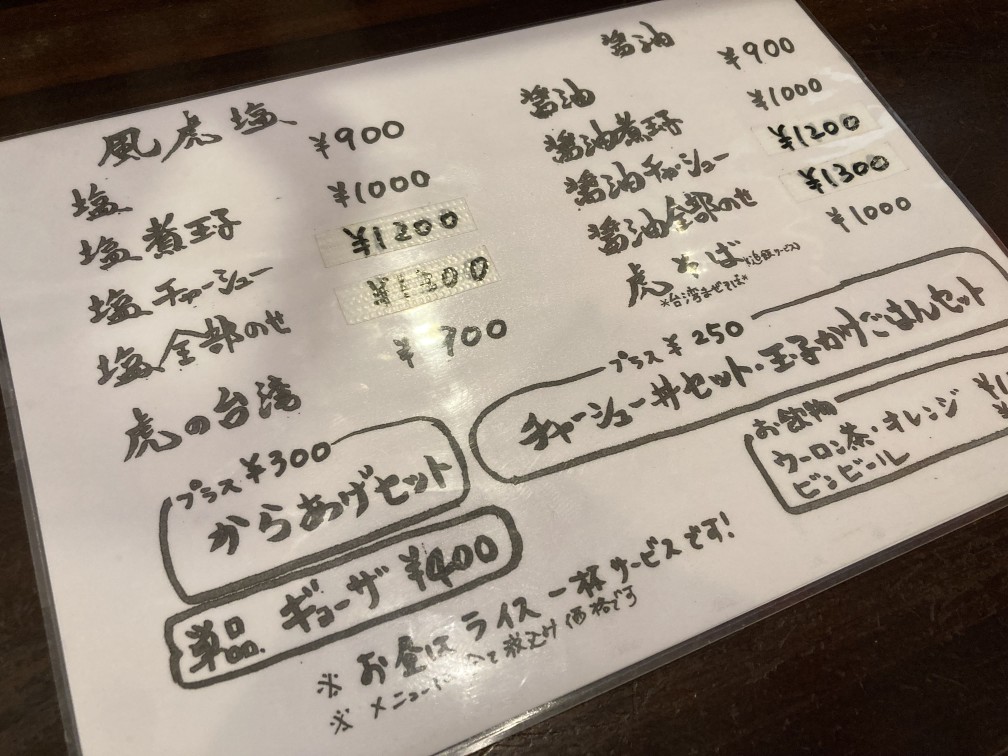 風虎塩
塩 ¥900
塩煮玉子 ¥1000
塩チャーシュー ¥1200
塩全部のせ ¥1300
虎の台湾 ¥900
プラス ¥300
からあげセット
単品 ギョーザ ¥400
醤油
醤油 ¥900
醤油煮玉子 ¥1000
醤油チャーシュー ¥1200
醤油全部のせ ¥1300
虎そば ¥1000
※追飯サービス
※台湾まぜそば※
プラス ¥250
チャーシュー丼セット・玉子かけごはんセット
お飲物
ウーロン茶・オレンジ
ビンビール
※ お昼はライス一杯サービスです!
※ メニューは全て税込み価格です